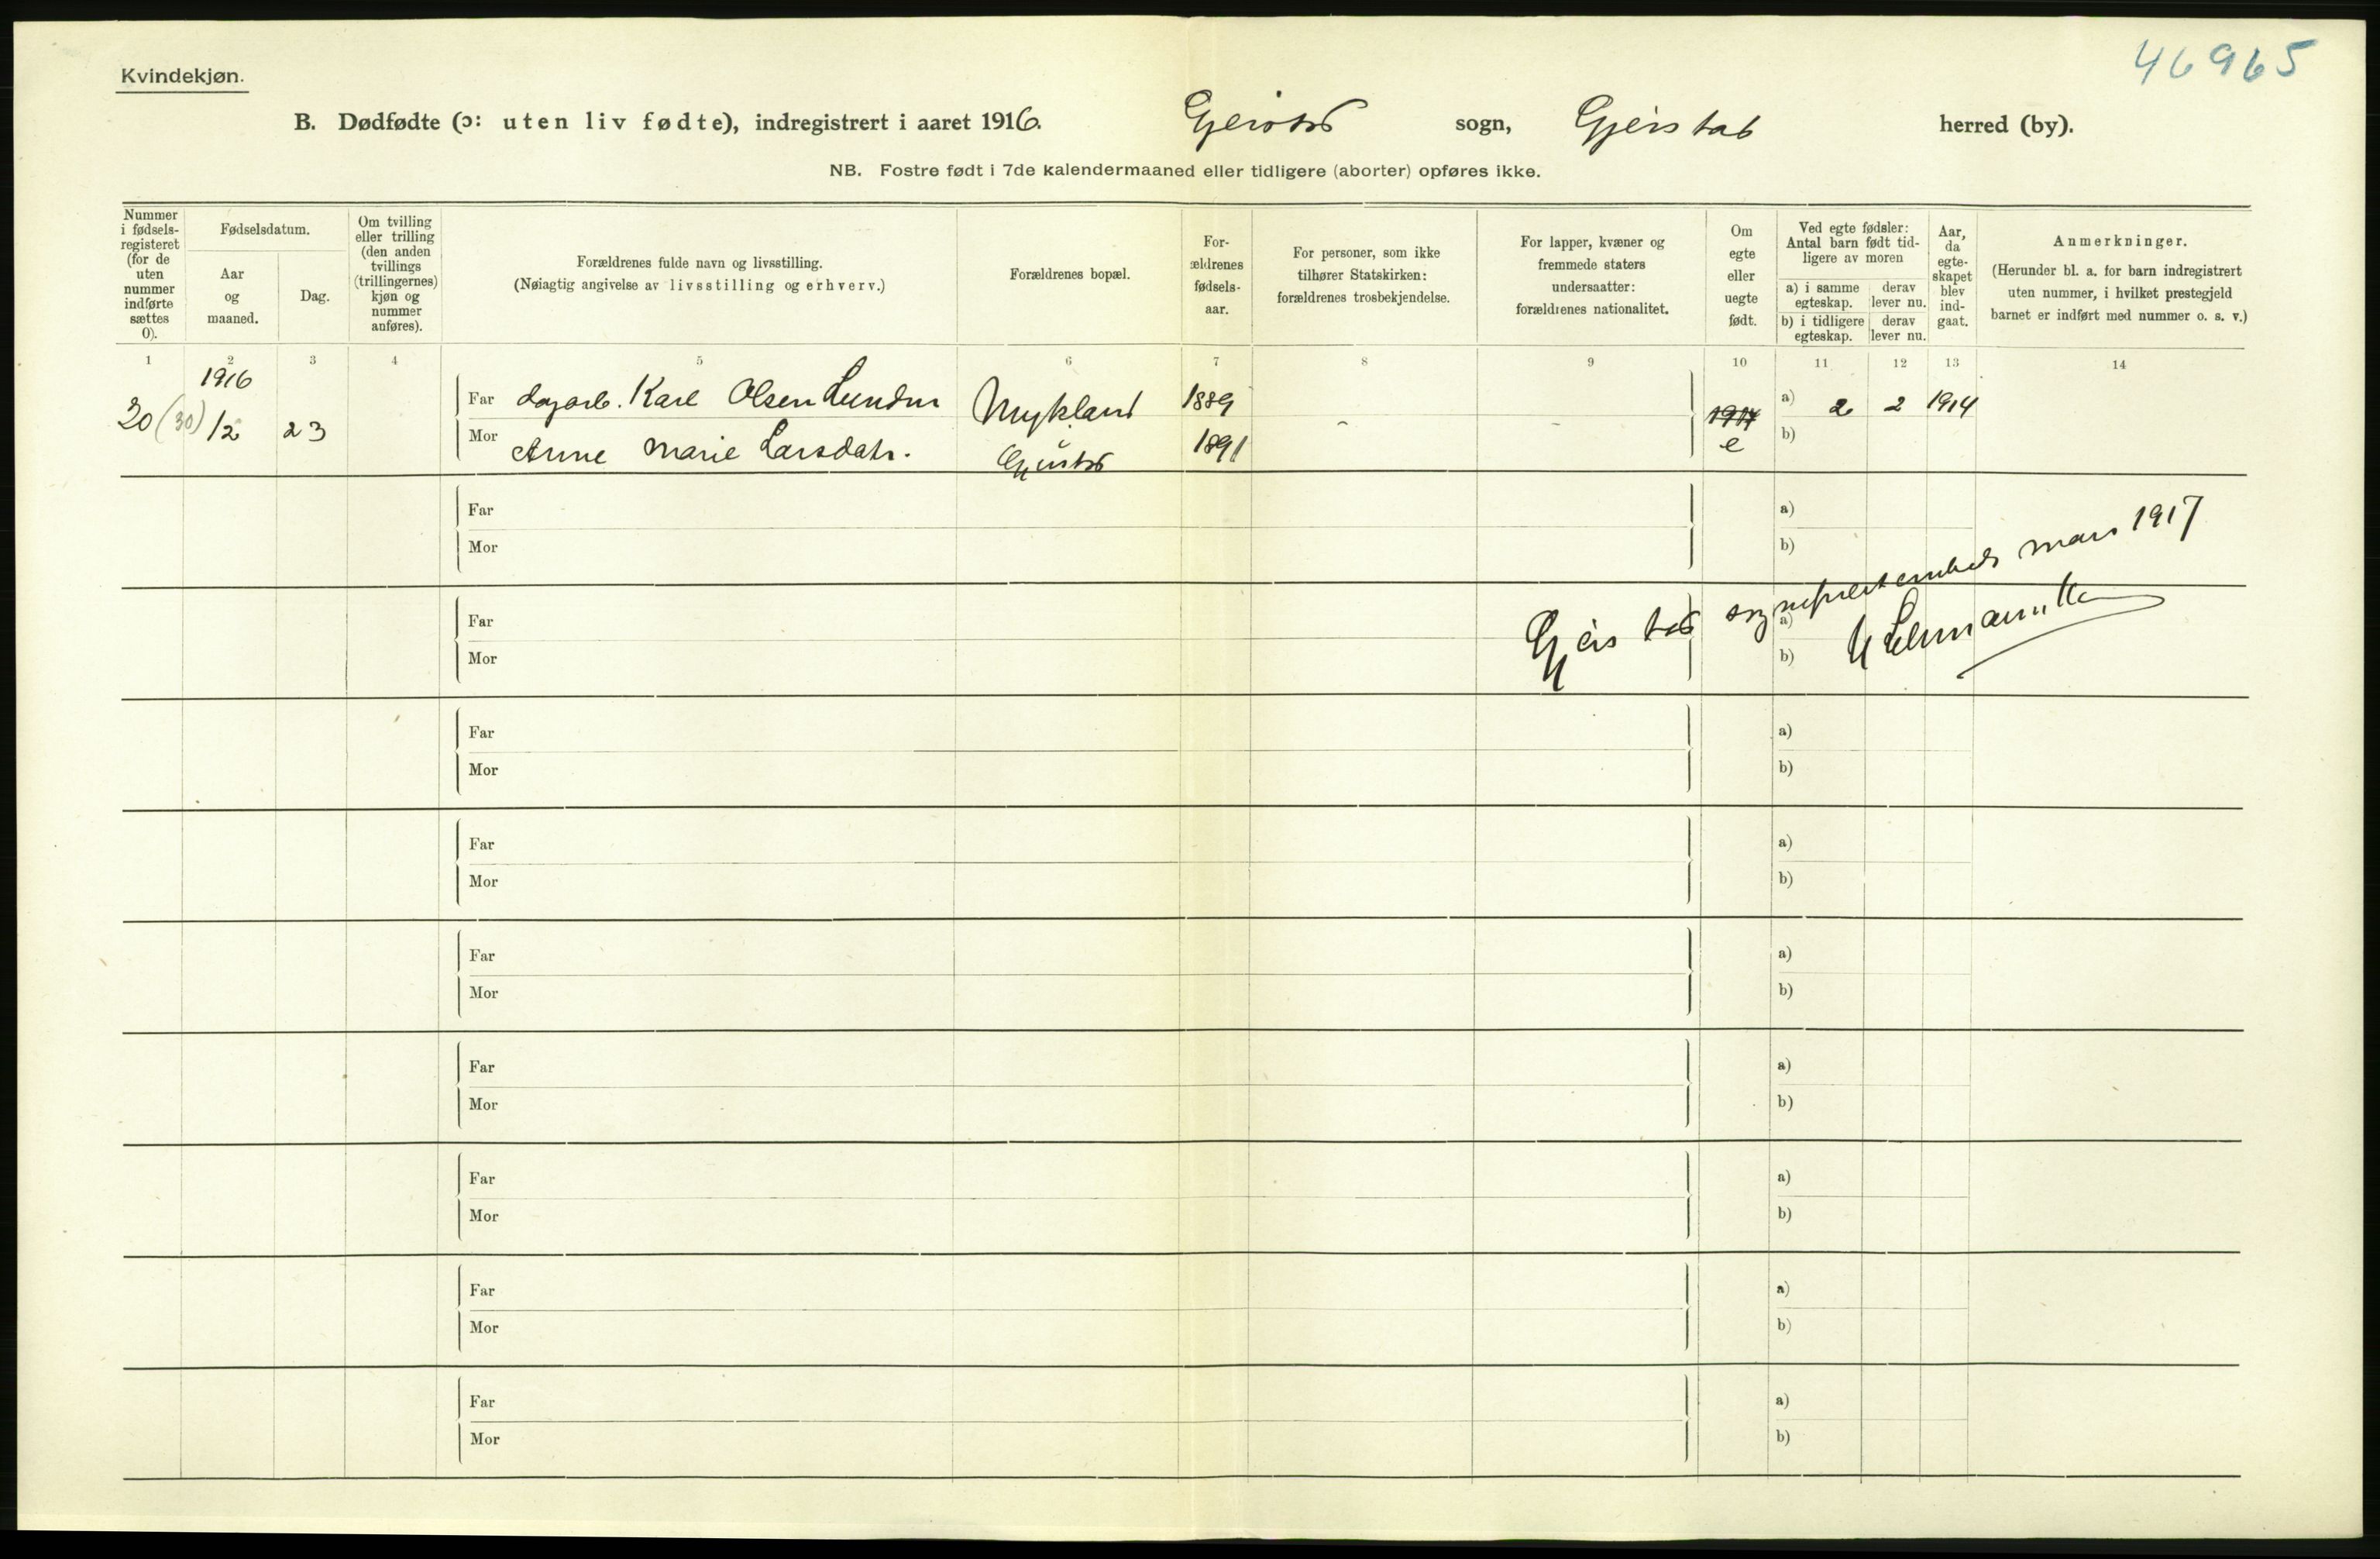 46965
Kvindekjøn.
B. Dødfødte (ɔ: uten liv fødte), indregistrert i aaret 1916. Gjerstad sogn, Gjerstad herred (by).
NB. Fostre født i 7de kalendermaaned eller tidligere (aborter) opføres ikke.
Nummer
i fødsels-
registeret
(for de
uten
nummer
indførte
sættes
0).
Fødselsdatum.
Aar
og
maaned.
Dag.
Om tvilling
eller trilling
(den anden
tvillings
(trillingernes)
kjøn og
nummer
anføres).
Forældrenes fulde navn og livsstilling.
(Nøiagtig angivelse av livsstilling og erhverv.)
Forældrenes bopæl.
For-
ældrenes
fødsels-
aar.
For personer, som ikke
tilhører Statskirken:
forældrenes trosbekjendelse.
For lapper, kvæner og
fremmede staters
undersaatter:
forældrenes nationalitet.
Om
egte
eller
uegte
født.
Ved egte fødsler:
Antal barn født tid-
ligere av moren
a) i samme
egteskap.
derav
lever nu.
b) i tidligere
egteskap.
derav
lever nu.
Aar,
da
egte-
skapet
blev
ind-
gaat.
Anmerkninger.
(Herunder bl. a. for barn indregistrert
uten nummer, i hvilket prestegjeld
barnet er indført med nummer o. s. v.)
1 2 3 4 5 6 7 8 9 10 11 12 13 14
1916
20 (30) 12 23
Far dagarb. Karl Olsen Mykland 1889 - - 1914 a) 2 2 1914
Mor Anne Marie Larsdatr. Gjerstad 1891 e b)
Far a)
Mor b)
Gjerstad sogneprestembede mars 1917
Far a)
Mor b)
Far a)
Mor b)
Far a)
Mor b)
Far a)
Mor b)
Far a)
Mor b)
Far a)
Mor b)
Far a)
Mor b)
Far a)
Mor b)